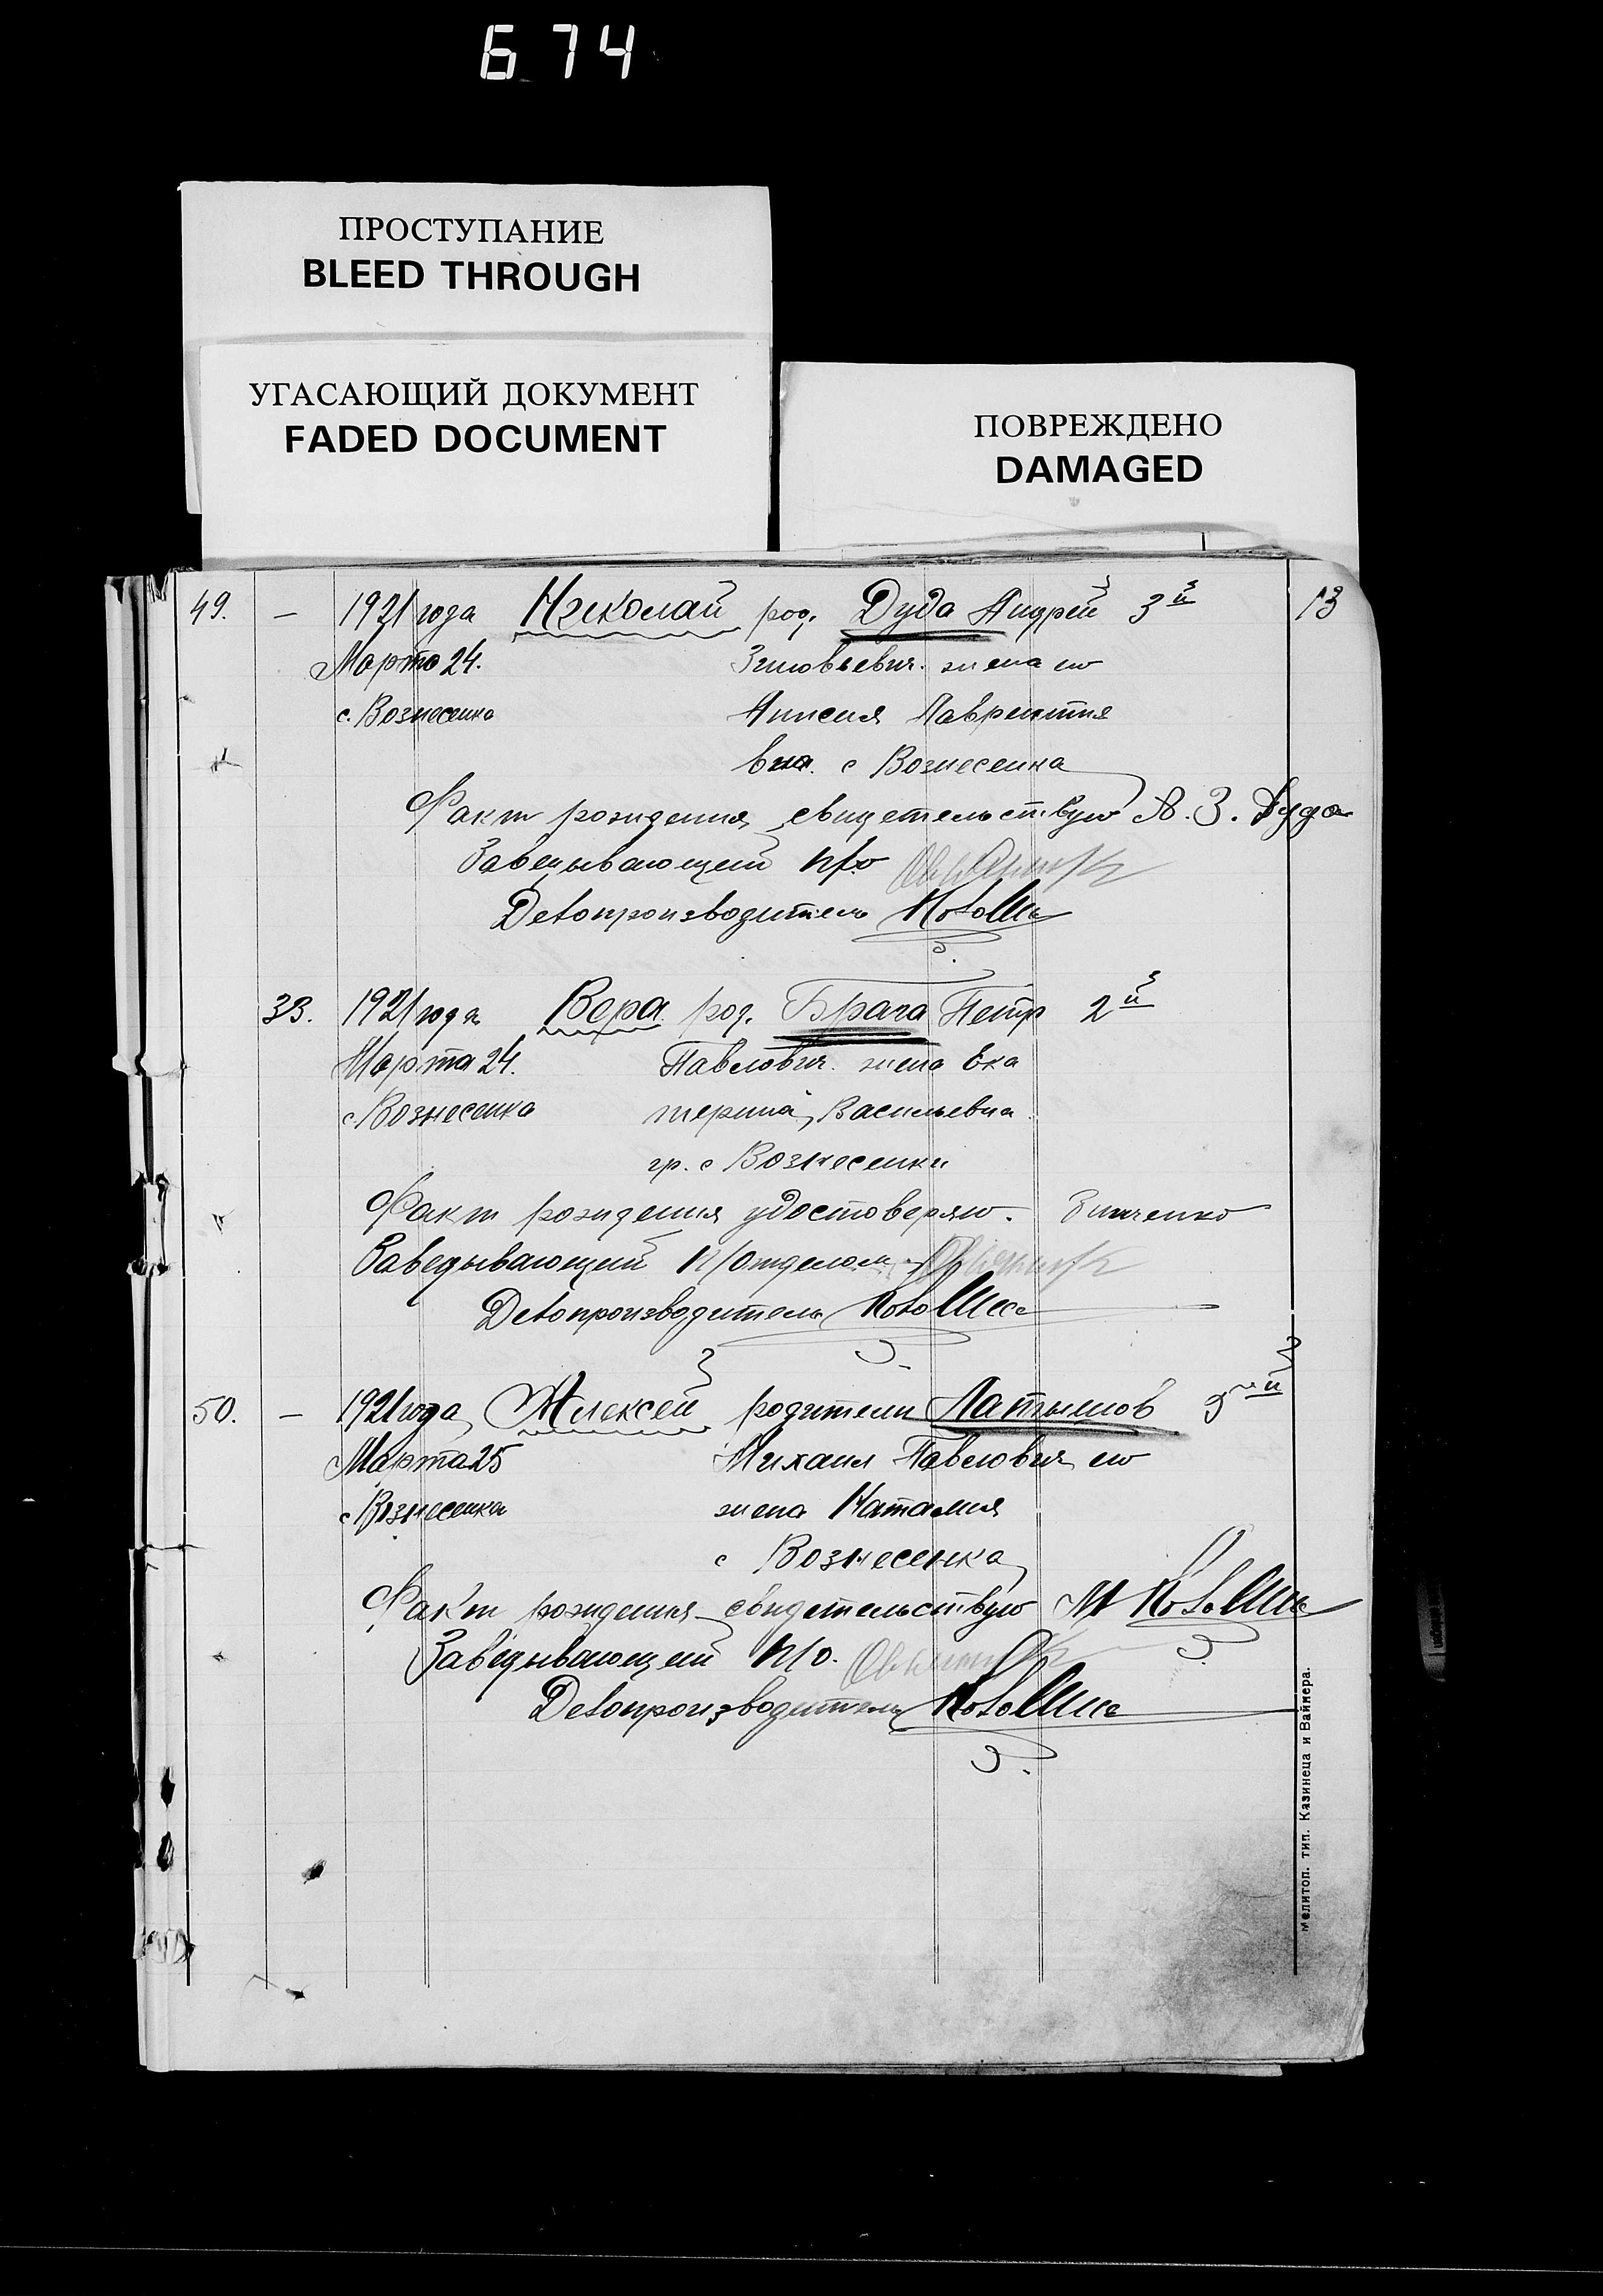 674
ПРОСТУПАНИЕ
BLEED THROUGH
УГАСАЮЩИЙ ДОКУМЕНТ
FADED DOCUMENT
ПОВРЕЖДЕНО
DAMAGED
49. — 1921 года Николай род. Дуда Андрей 3й 13
Марта 24. Зиновьевич. жена его
с. Вознесенка Анисия Лаврентие
вна. с Вознесенка
Факт рождения свидетельствую А. З. Дуда
Заведывающий п/о
Делопроизводитель
33. 1921 года Вера род. Брага Петр 2й
Марта 24. Павлович. жена Ека
с. Вознесенка терина Васильевна
гр. с Вознесенки
Факт рождения удостоверяю. Зинченко
Заведывающий п/отделом
Делопроизводитель
50. — 1921 года Алексей родители Латышов 3ий
Марта 25 Михаил Павлович его
с Вознесенка жена Наталия
с Вознесенка
Факт рождения свидетельствую М
Заведывающий п/о.
Делопроизводитель
Мелитоп. тип. Казинеца и Вайнера.